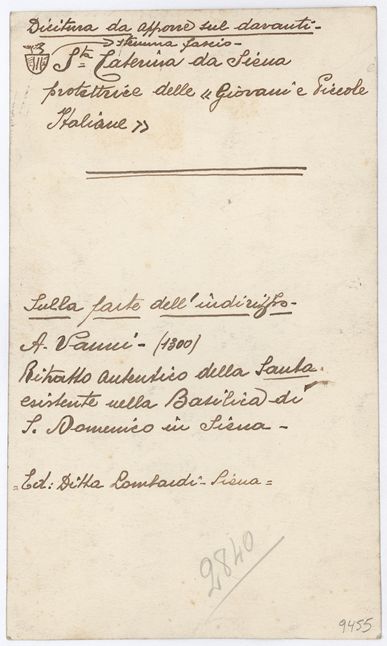 Dicitura da apporre sul davanti-
stemma fascio-
Sta Caterina da Siena
protettrice delle «Giovani e Piccole
Italiane»
Sulla parte dell'indirizzo-
A. Vanni- (1300)
Ritratto autentico della Santa
esistente nella Basilica di
S. Domenico in Siena-
=Ed: Ditta Lombardi- Siena=
2840
9455